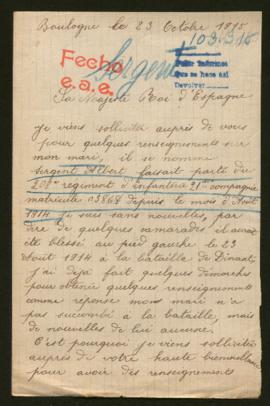 Boulogne le 23 Octobre 1915
103.315
Fecha
e.a.e.
Sergent
Sa Majesté Roi d'Espagne
Je viens solliciter auprès de vous
pour quelques renseignements sur
mon mari, il se nomme
Sergent Albert faisait partie du
208e régiment d'infanterie 21e compagnie
matricule 03867 depuis le mois d'Août
1914 Je suis sans nouvelles, par
dire de quelques camarades il aurait
été blessé au pied gauche le 23
Août 1914 à la bataille de Dinant
J'ai déjà fait quelques démarches
pour obtenir quelques renseignements
comme réponse mon mari n'a
pas succombé à la bataille, mais
de nouvelles de lui aucune.
C'est pourquoi je viens solliciter
auprès de votre haute bienveillance
pour avoir des renseignements